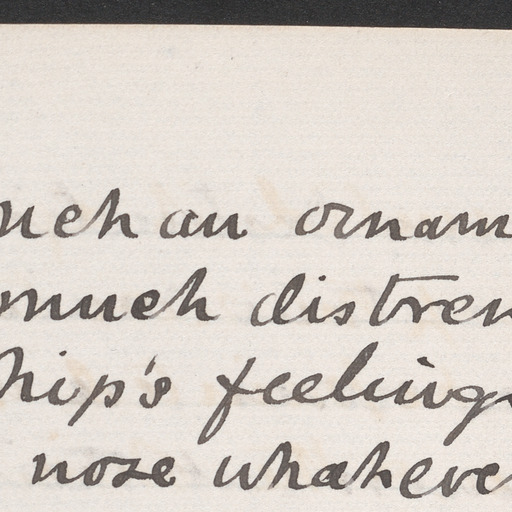 uch an ornam
much distres
hip's feelings
nose whatever